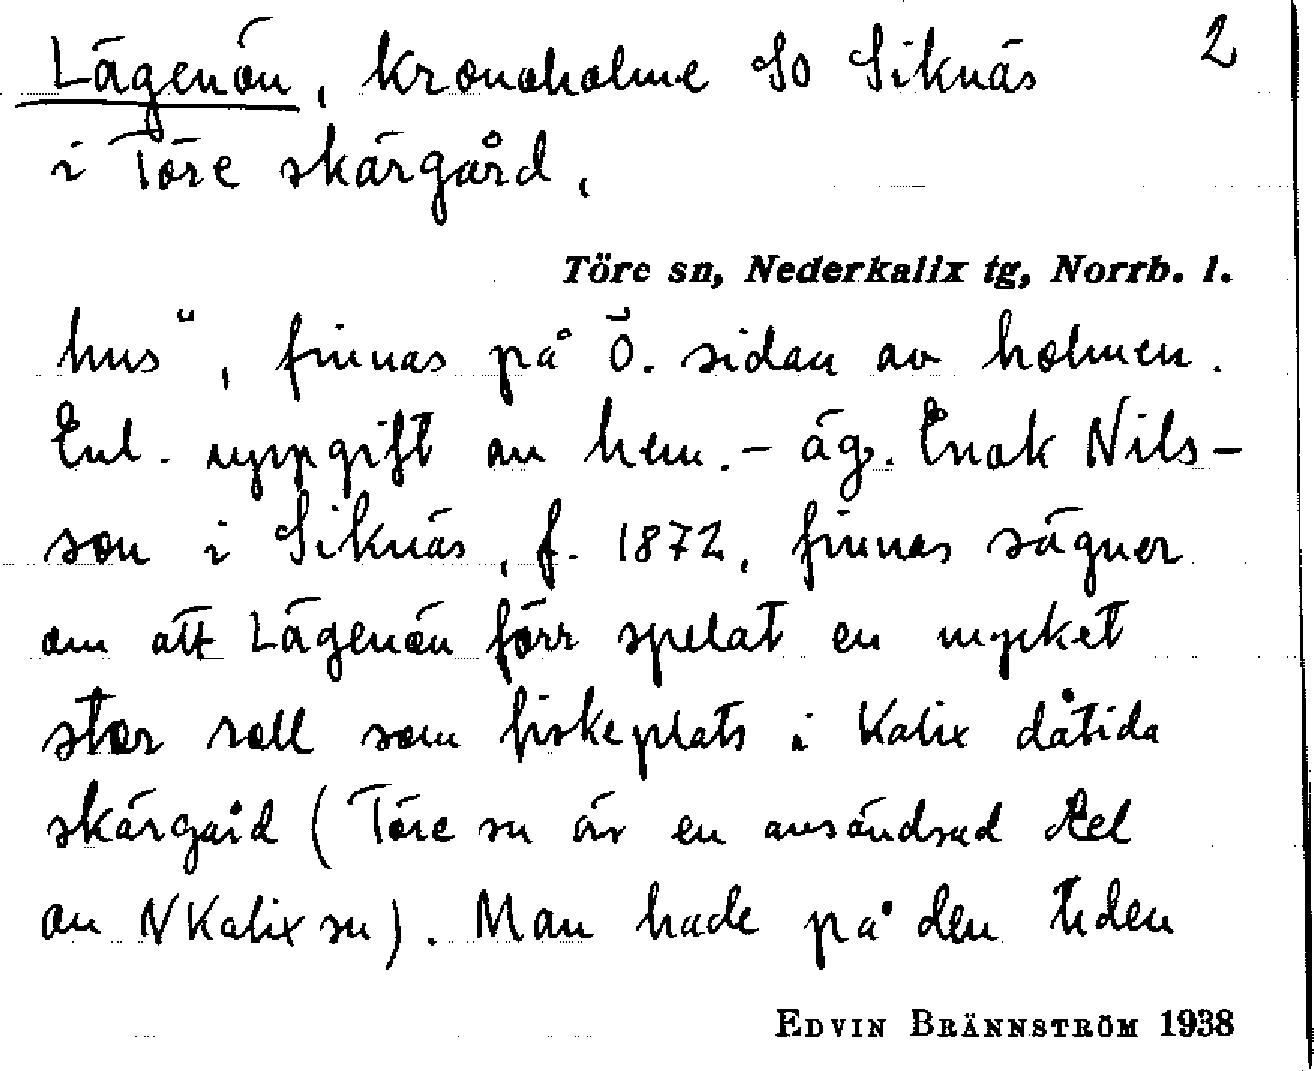 Lägenön, kronoholme SO Siknäs 2
i Töre skärgård.
Töre sn, Nederkalix tg, Norrb. l.
hus", finnas på Ö. sidan av holmen.
Enl. uppgift av hem.-äg. Enok Nils-
son i Siknäs, f. 1872, finnas sägner
om att Lägenön förr spelat en mycket
stor roll som fiskeplats i Kalix dåtida
skärgård (Töre sn är en avsöndrad del
av NKalix sn). Man hade på den tiden
EDVIN BRÄNNSTRÖM 1938